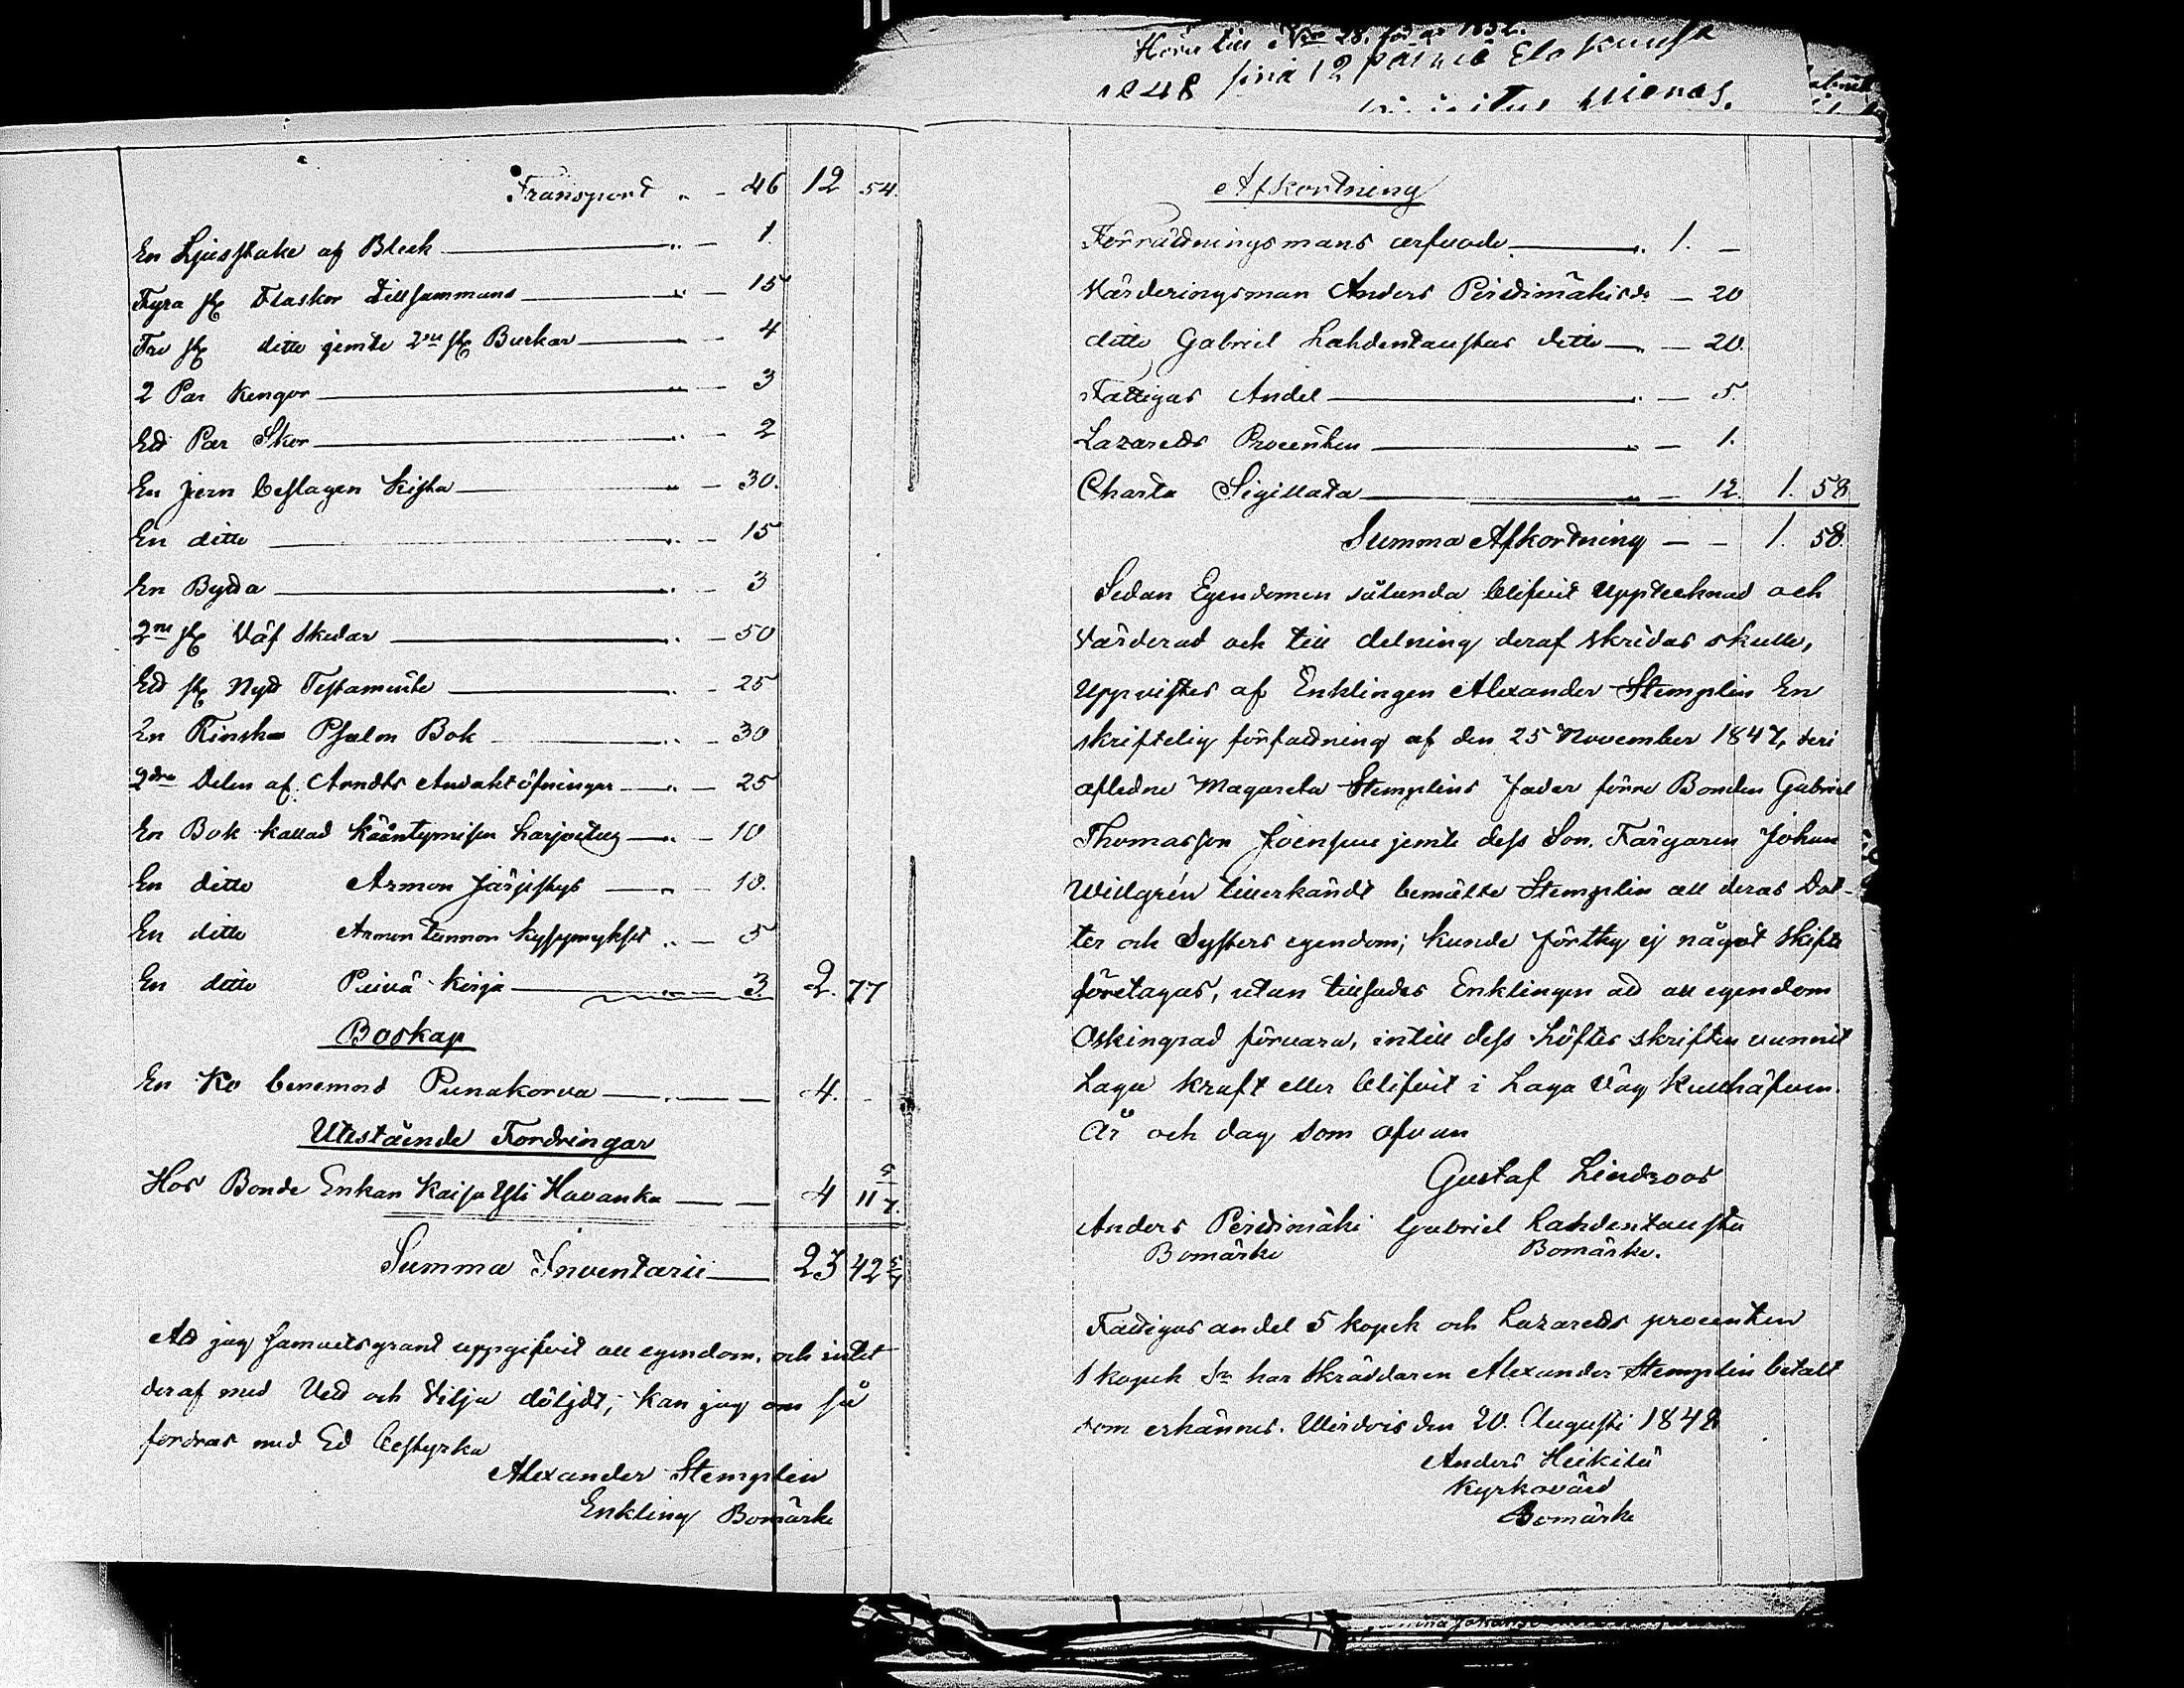 Transport " - 46 12 54.
En Ljusstake af Bleck " - 1.
Fyra st Flaskor tillsammans " - 15
Tre st ditto jemte 2ne st Burkar " - 4
2 Par Kengor " - 3
Ett Par Skor " - 2
En jern beslagen Kista " - 30.
En ditto " - 15
En Bytta " - 3
2ne st Väf Skedar " - 50
Ett st Nytt Testamente " - 25
En Finsk Psalm Bok " - 30
2dra Delen af Arndts Andaktöfningar " - 25
En Bok kallad Kääntymisen harjoitus " - 10
En ditto Armon Järjestys " - 10.
En ditto Armon tunnon Kysymykset " - 5
En ditto Peivä kirja " - 3. 2. 77
Boskap
En Ko benemnd Punakorva 4. -
Utestående Fordringar
Hos Bonde Enkan Kaisa Yli Havanka 4 11 5/7.
Summa Inventarii 23 42 5/7
Att jag samvetsgrant uppgifvit all egendom, och intet
deraf med Vett och Vilja döljdt, kan jag om så
fordras med Ed bestyrka
Alexander Stemplin
Enkling Bomärke
1848
Afkortning
Förrättningsmans arfvode " 1. -
Värderingsman Anders Peitsimäki - 20
ditto Gabriel Lahdentaustas ditto - 20.
Fattigas Andel " - 5.
Lazaretts Procenten " - 1.
Charta Sigillata " - 12. 1. 58
Summa Afkortning - - 1. 58.
Sedan Egendomen sålunda blifvit upptecknad och
värderad och till delning deraf skridas skulle,
uppvistes af Enklingen Alexander Stemplin En
skriftelig författning af den 25 November 1847, deri
afledne Magareta Stemplins Fader förre Bonden Gabriel
Thomasson Joensuu jemte dess Son, Färgaren Johan
Willgrén tillerkändt bemälte Stemplin all deras Dot-
ter och Systers egendom; kunde förthy ej något skifte
företagas, utan tillsades Enklingen att all egendom
Oskingrad förvara, intill dess skriften vunnit
Laga kraft eller blifvit i Laga Väg Kullkäfven.
År och dag som ofvan
Gustaf Lindroos
Anders Peitsimäki Gabriel Lahdentausta
Bomärke Bomärke.
Fattigas andel 5 kopek och Lazaretts procenten
1 kopek Sr har Skräddaren Alexander Stemplin betalt
som erkännes. den 20. Augusti 1848
Anders Heikilä
Kyrkovärd
Bomärke